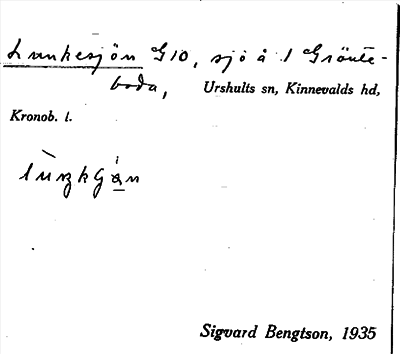 Lunkesjön G10, sjö å 1 Gränte-
boda, Urshults sn, Kinnevalds hd,
Kronob. l.
Sigvard Bengtson, 1935